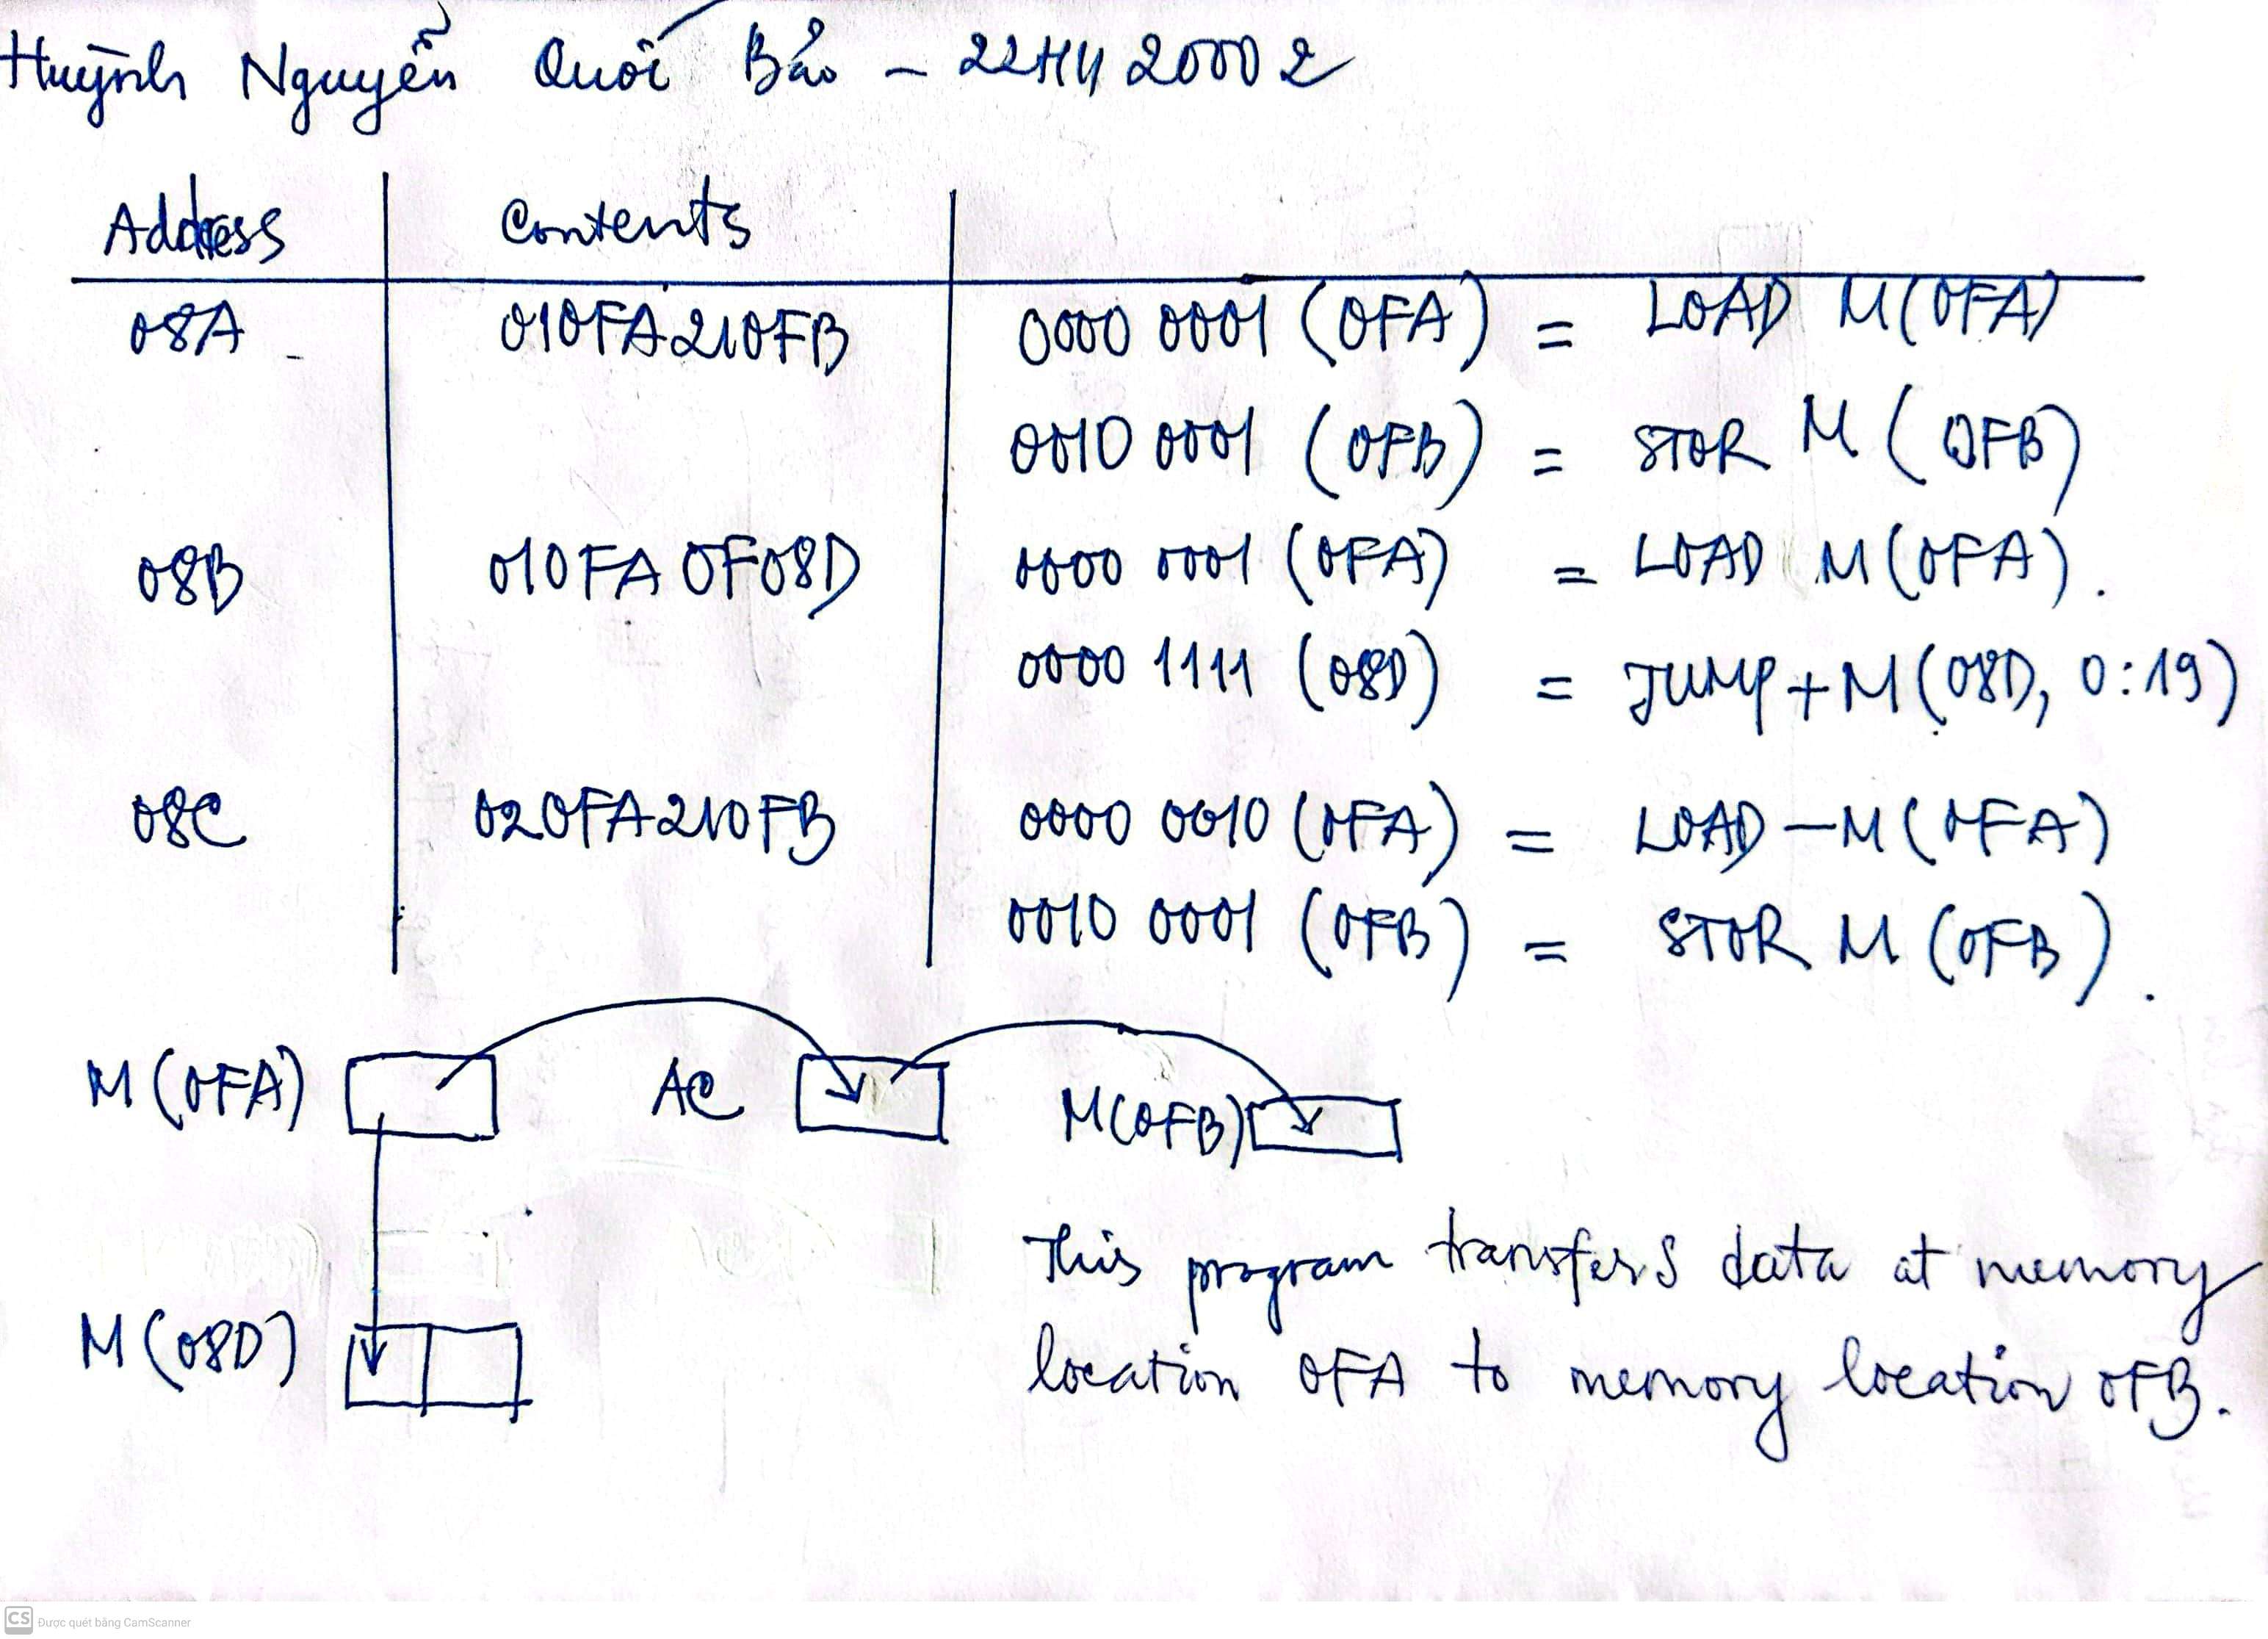 Huỳnh Nguyễn Quốc Bảo - 22H1120002
Address Contents
08A 010FA210FB 0000 0001 (0FA) = LOAD M(0FA)
0010 0001 (0FB) = STOR M (0FB)
08B 010FA0F08D 0000 0001 (0FA) = LOAD M(0FA).
0000 1111 (08D) = JUMP + M(08D, 0:19)
08C 020FA210FB 0000 0010 (0FA) = LOAD -M(0FA)
0010 0001 (0FB) = STOR M (0FB).
M(0FA) AC M(0FB)
This program transfers data at memory
M(08D) location 0FA to memory location 0FB.
CS Được quét bằng CamScanner